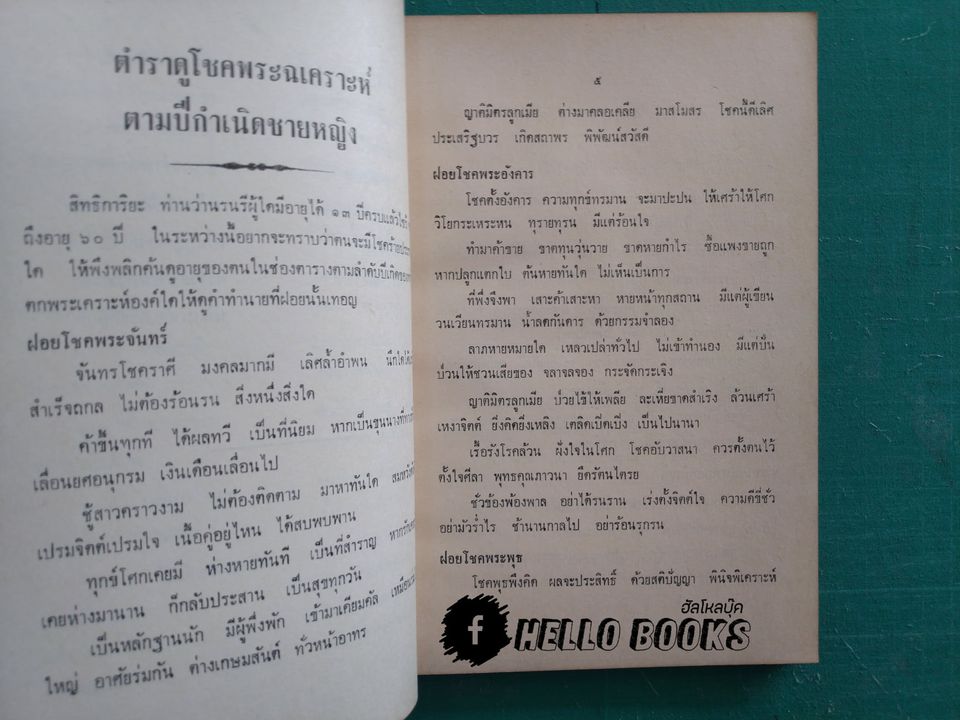 ตำราดูโชคพระฉเคราะห์
ตามปีกำเนิดชายหญิง
สิทธิการิยะ ท่านว่านรนรีผู้ใดมีอายุได้ ๑๓ ปีครบแล้วไซร้
ถึงอายุ ๖๐ ปี ในระหว่างนี้อยากจะทราบว่าตนจะมีโชคร้าย
ใด ให้พึงพลิกค้นดูอายุของตนในช่องตารางตามลำดับปีเกิด
ตกพระเคราะห์องค์ใดให้ดูคำทำนายที่ฝอยนั้นเทอญ
ฝอยโชคพระจันทร์
จันทรโชคราศี มงคลมากมี เลิศล้ำอำพน นึกใด
สำเร็จถกล ไม่ต้องร้อนรน สิ่งหนึ่งสิ่งใด
ค้าขึ้นทุกที ได้ผลทวี เป็นที่นิยม หากเป็นขุนนาง
เลื่อนยศอนุกรม เงินเดือนเลื่อนไป
ชู้สาวคราวงาม ไม่ต้องติดตาม มาหาทันใด สมหวัง
เปรมจิตต์เปรมใจ เนื้อคู่อยู่ไหน ได้สบพบพาน
ทุกข์โศกเคยมี ห่างหายทันที เป็นที่สำราญ
เคยห่างมานาน ก็กลับประสาน เป็นสุขทุกวัน
เป็นหลักฐานนัก มีผู้พึ่งพัก เข้ามาเดียมคัล
ใหญ่ อาศัยร่มกัน ต่างเกษมสันต์ ทั่วหน้าอาทร
๕
ญาติมิตรลูกเมีย ต่างมาคลอเคลีย มาสโมสร โชคนี้ดีเลิศ
ประเสริฐบวร เกิดสถาพร พิพัฒน์สวัสดี
ฝอยโชคพระอังคาร
โชคตั้งอังคาร ความทุกข์ทรมาน จะมาปะปน ให้เศร้าให้โศก
วิโยกระเหระหน ทุรายทุรน มีแต่ร้อนใจ
ทำมาค้าขาย ขาดทุนวุ่นวาย ขาดหายกำไร ซื้อแพงขายถูก
หากปลูกแตกใบ ต้นหายทันใด ไม่เห็นเป็นการ
ที่พึ่งจึงพา เสาะค้าเสาะหา หายหน้าทุกสถาน มีแต่ผู้เขียน
วนเวียนทรมาน น้ำลดกันดาร ด้วยกรรมจำลอง
ลาภหายหมายใด เหลวเปล่าทั่วไป ไม่เข้าทำนอง มีแต่ปั่น
ป่วนให้ชวนเสียของ จลาจลจอง กระจัดกระเจิง
ญาติมิตรลูกเมีย ป่วยไข้ให้เพลีย ละเหี่ยขาดสำเริง ล้วนเศร้า
เหงาจิตต์ ยิ่งคิดยิ่งเหลิง เตลิดเปิดเปิ่ง เป็นไปนานา
เรื้อรังโรคล้วน ฝั่งใจในโศก โชคอับวาสนา ควรตั้งตนไว้
ตั้งใจศีลา พุทธคุณภาวนา ยึดรัตนไตรย
ชั่วข้องพ้องพาล อย่าได้รนราน เร่งตั้งจิตต์ใจ ความดีขี่ชั่ว
อย่ามัวร่ำไร ช้านานกาลไป อย่าร้อนรุกรน
ฝอยโชคพระพุธ
โชคพุธพึงคิด ผลจะประสิทธิ์ ด้วยสติปัญญา พินิจพิเคราะห์
ฮัลโหลบุ๊ค
f HELLO BOOKS